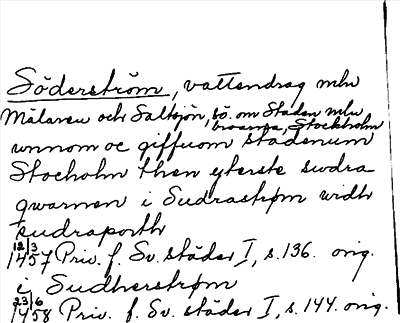 Söderström, vattendrag mln
Mälaren och Saltsjön, sö. om Staden mln
broarna, Stockholm
unnom oc giffuom stadenum
Stocholm then yterste swdra
qwarnen i Sudrastrøm widh
sudraporth
12/3
1457 Priv. f. Sv. städer I, s. 136. orig.
i Sudherstrøm
23/6
1458 Priv. f. Sv. städer I, s. 144. orig.